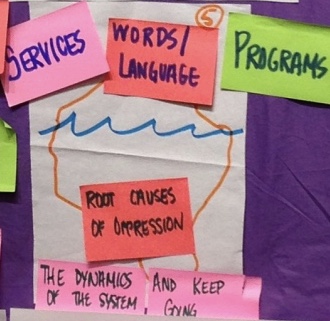 5
SERVICES
WORDS/
LANGUAGE
PROGRAMS
ROOT CAUSES
OF OPPRESSION
THE DYNAMICS
OF THE SYSTEM
AND KEEP
GOING